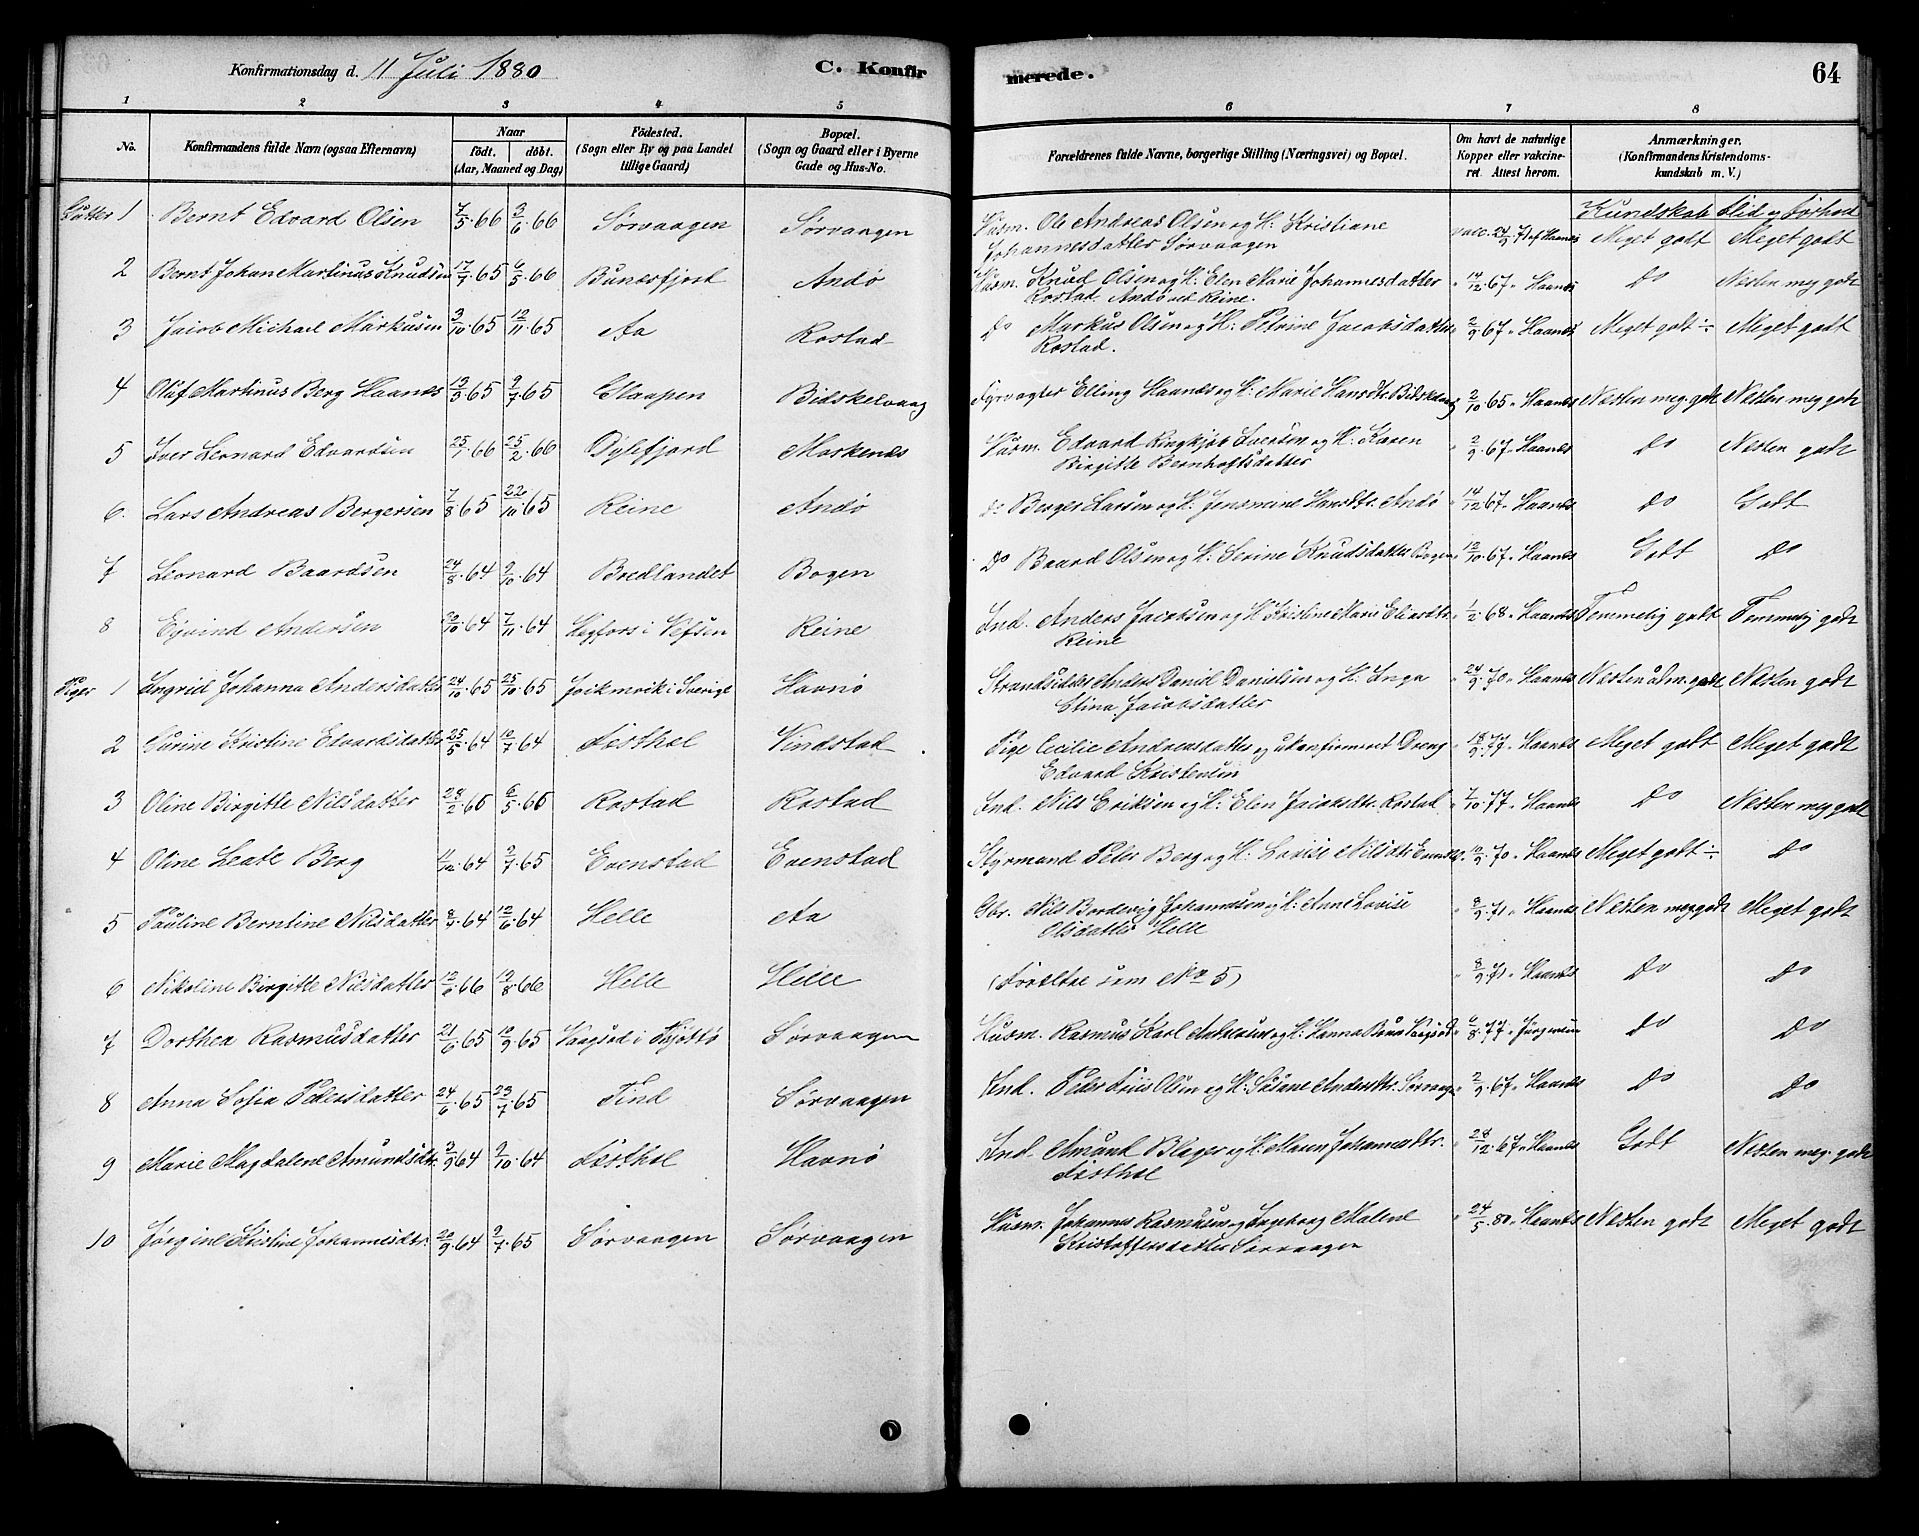 Konfirmationsdag d. 11 Juli 1880 C. Konfirmerede. 64
1 2 3 4 5 6 7 8
No. Konfirmandens fulde Navn (ogsaa Efternavn) Naar født. døbt. (Aar, Maaned og Dag) Födested. (Sogn eller By og paa Landet tillige Gaard) Bopæl. (Sogn og Gaard eller i Byerne Gade og Hus-No. Forældrenes fulde Navne, borgerlige Stilling (Næringsvei) og Bopæl. Om havt de naturlige Kopper eller vakcineret. Attest herom. Anmærkninger. (Konfirmandens Kristendomskundskab m. V.)
Kundskab Flid og Forhod
Gutter 1 Bernt Edvard Olsen 7/5.66 3/6.66 Sørvaagen Sørvaagen Husm. Ole Andreas Olsen og H: Kristiane vacc. 24/9.71 af Haanes Meget godt Meget godt
Johannesdatter Sørvaagen
2 Bernt Johan Martinus Knudsen 17/7.65 6/5.66 Bunesfjord Andø Husm. Knud Olsen og H: Elen Marie Johannesdatter " 14/12.67 " Haanes Do Nesten meg godt
Rostad Andø ved Reine.
3 Jacob Michael Markusen 3/10.65 12/11.65 Aa Rostad Do Markus Olsen og H: Petrine Jacobsdatter " 2/9.67 " Haanes Meget godt ÷ Meget godt
Rostad.
4 Oluf Martinus Berg Haanes 13/3.65 9/7.65 Glaapen Bidskelvaag Fyrvogter Elling Haanes og H: Marie Hansdtr " 2/10.65 " Haanes Nesten meg. godt Nesten meg godt
5 Iver Leonard Edvardsen 25/1.66 25/2.66 Dylefjord Markenes Husm. Edvard Ringkjøb Iversen og H: Karen " 2/9.67 " Haanes Do Nesten godt
Birgitte Bernhoftsdatter
6. Lars Andreas Bergersen 7/8.65 22/10.65 Reine Andø do Berger Larsen og H: Jensmine Hansdtr. Andø " 14/12.67 " Haanes Do Godt
7 Leonard Baardsen 24/8.64 9/10.64 Bredlandet Bogen Do Baard Olsen og H: Serine Knudsdatter Bogen " 12/10.67 " Haanes Godt Do
8 Eyvind Andersen 10.64 7/11.64 i Vefsen Reine Ind. Anders Jacobsen og H: Kristine Marie Eliasdtr. " 1/2.68 " Haanes Temmelig godt Temmelig godt
Reine
Piger 1 Ingrid Johanna Andersdatter 24/10.65 25/10.65 i Sverige Havnø Strandsidder Anders Daniel Danielsen og H: Inga " 24/9.70 " Haanes Nesten godt Nesten godt
Stina Jacobsdatter
2 Surine Kristine Edvardsdatter 25/5.64 10/7.64 Festhel Vindstad Pige Cecilie Andreasdatter og ukonfirmeret Dreng " 18/9.77 " Haanes Meget godt Meget godt
Edvard Kristensen
3 Oline Birgitte Nilsdatter 28/2.65 6/5.65 Rostad Rostad Ind. Nils Eriksen og H: Elen Jacobsdtr. Rostad " 7/10.77 " Haanes Do Nesten meg godt
4 Oline Leate Berg 64 2/7.65 Evenstad Evenstad Styrmand Peder Berg og H: Lovise Nilsdtr " 10/9.70 " Haanes Meget godt ÷ Do
5 Pauline Berntine Nilsdatter 64 12/6.64 Helle Aa Gbr. Nils Bordevig Johannesen og H: Anne Lovise " 8/9.71 " Haanes Nesten meg godt Meget godt
Olsdatter Helle
6 Nikoline Birgitte Nilsdatter 12/6.66 12/8.66 Helle Helle (Forældre som No 5) " 8/9.71 " Haanes Do Do
7 Dorthea Rasmusdatter 21/6.65 10/9.65 i Tjøttø Sørvaagen Husm. Rasmus Karl og H: Hanna " 6/8.77 " Jürgensen Do Do
8 Anna Sofia Pedersdatter 24/6.65 23/7.65 Tind Sørvaagen Ind. Peder Olsen og H: Andersdtr. Sørvaagen " 2/9.67 " Haanes Do Do
9 Marie Magdalene Amundsdtr. 3/9.64 9/10.64 Festhel Havnø Ind. Amund Blager og H: Maren Johannesdtr. " 28/12.67 " Haanes Godt Nesten meg. godt
Festhel
10 Jørgine Kristine Johannesdtr. 20/9.64 9/7.65 Sørvaagen Sørvaagen Husm. Johannes Rasmusen og Ingeborg Malene " 24/5.80 " Haanes Nesten godt Meget godt
Kristoffersdatter Sørvaagen